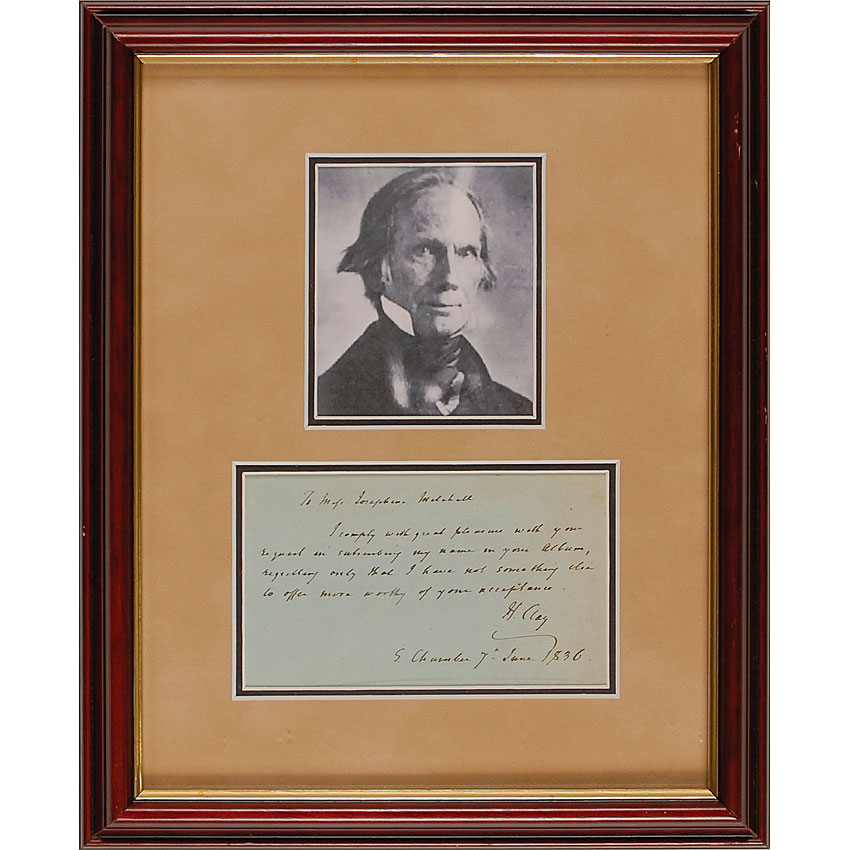 To Miss Josephine Mitchell
I comply with great pleasure with your
request in subscribing my name in your Album,
regretting only that I have not something else
to offer more worthy of your acceptance.
H. Clay
S. Chamber 7th June 1836.